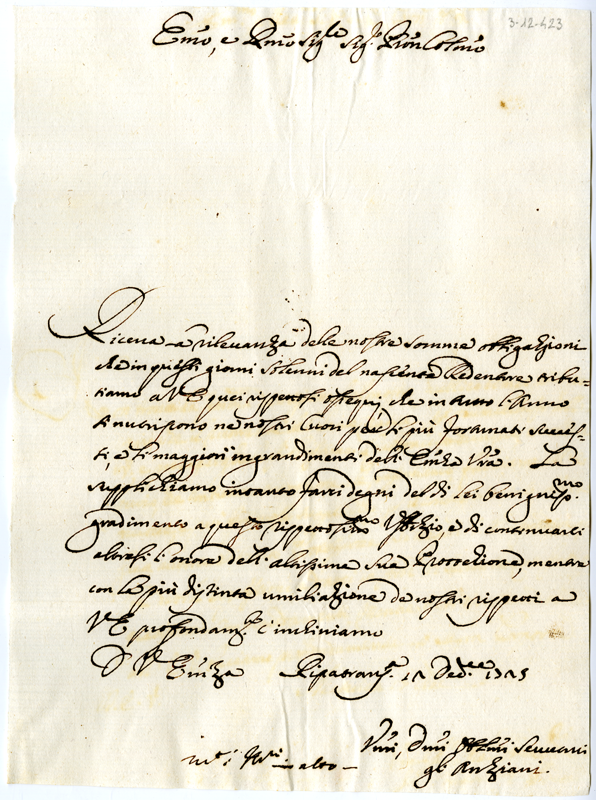 3-12-423
Emo, e Rmo Sigre Sigr Pron Colmo
Ricerca la rilevanza delle nostre somme obligazioni
che in questi giorni solenni del nascente Redentore tribu=
tiamo a V E quei rispettosi ossequj che in tutto l'Anno
si nutriscono ne nostri Cuori per li più fortunati success-
si, e li maggiori ingrandimenti dell' Emza Vra. La
supplichiamo intanto farci degni del di lei benignissmo
gradimento a questo rispettosissmo Uffizio, e di continuarci
altresi l'onore dell' altissima sua Protezione, mentre
con la più distinta umiliazione de nostri rispetti a
V E profondamte c'inchiniamo
D V Emza Ripatransa 17 Decre
Umi, Dmi Obblmi Servitori
gli Anziani.
in alto